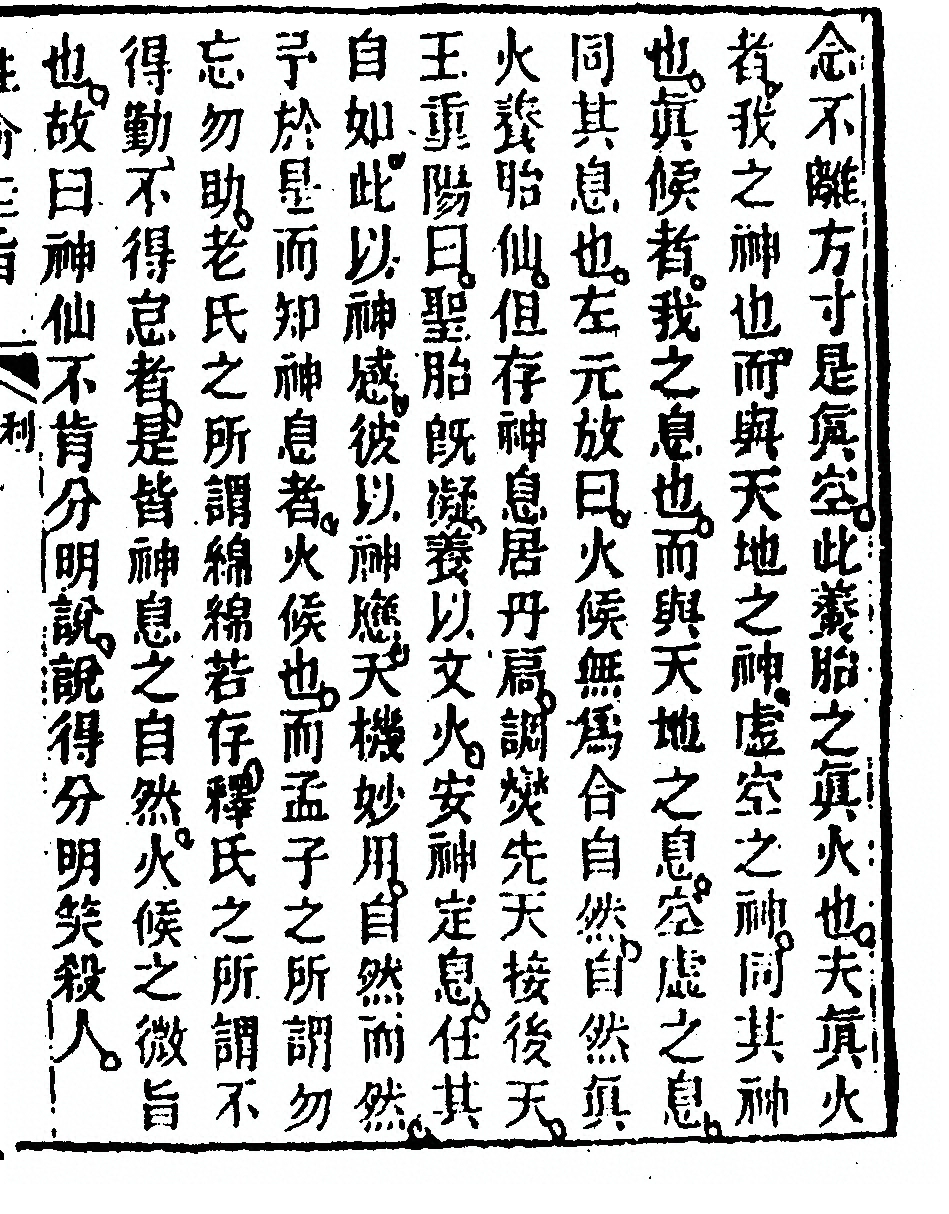 念不離方寸是眞空此養胎之眞火也夫眞火
者我之神也而與天地之神虛空之神同其神
也眞候者我之息也而與天地之息空虛之息
同其息也左元放曰火候無爲合自然自然眞
火養胎仙但存神息居丹扃調爕先天接後天
王重陽曰聖胎旣凝養以文火安神定息任其
自如此以神感彼以神應天機妙用自然而然
予於是而知神息者火候也而孟子之所謂勿
忘勿助老氏之所謂綿綿若存釋氏之所謂不
得勤不得怠者是皆神息之自然火候之微旨
也故曰神仙不肯分明說說得分明笑殺人
利